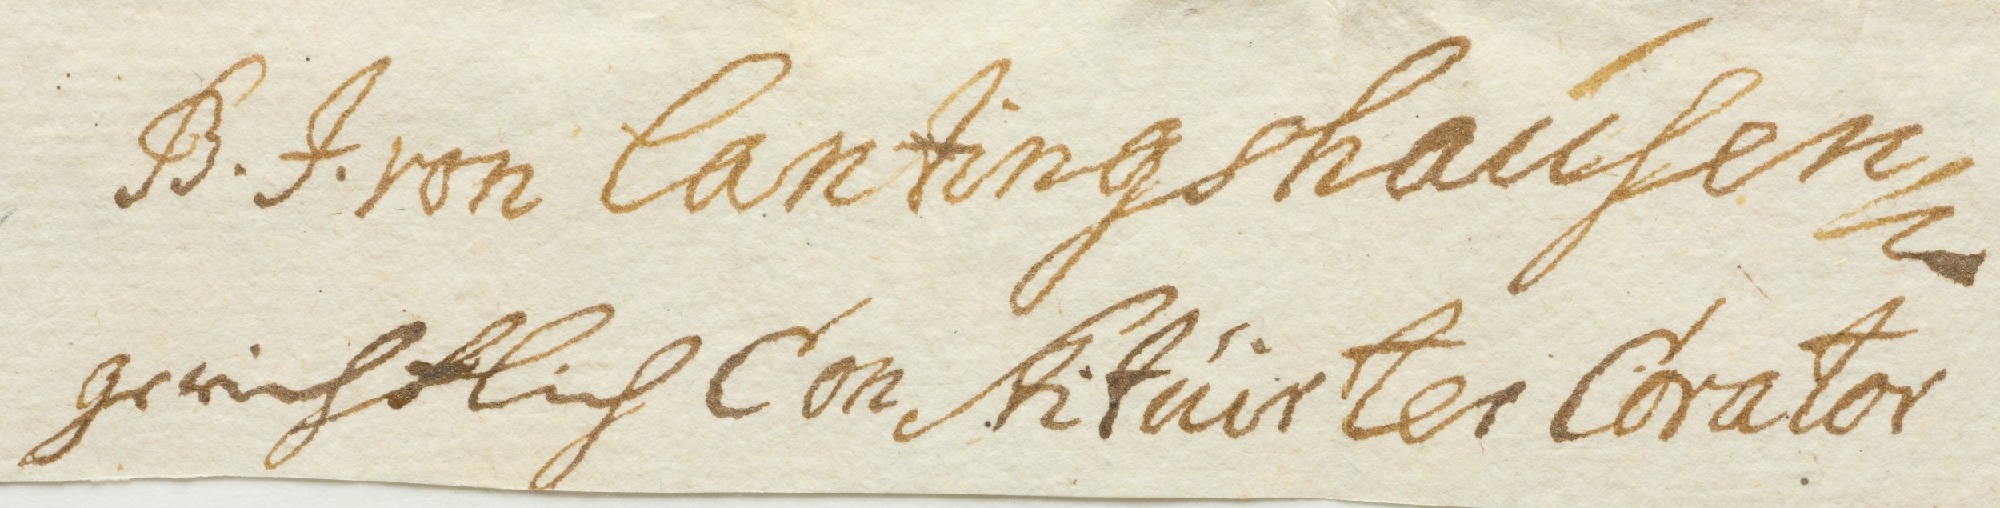 B. J. von Lantingshausen
gerichtlich Constituirter Corator